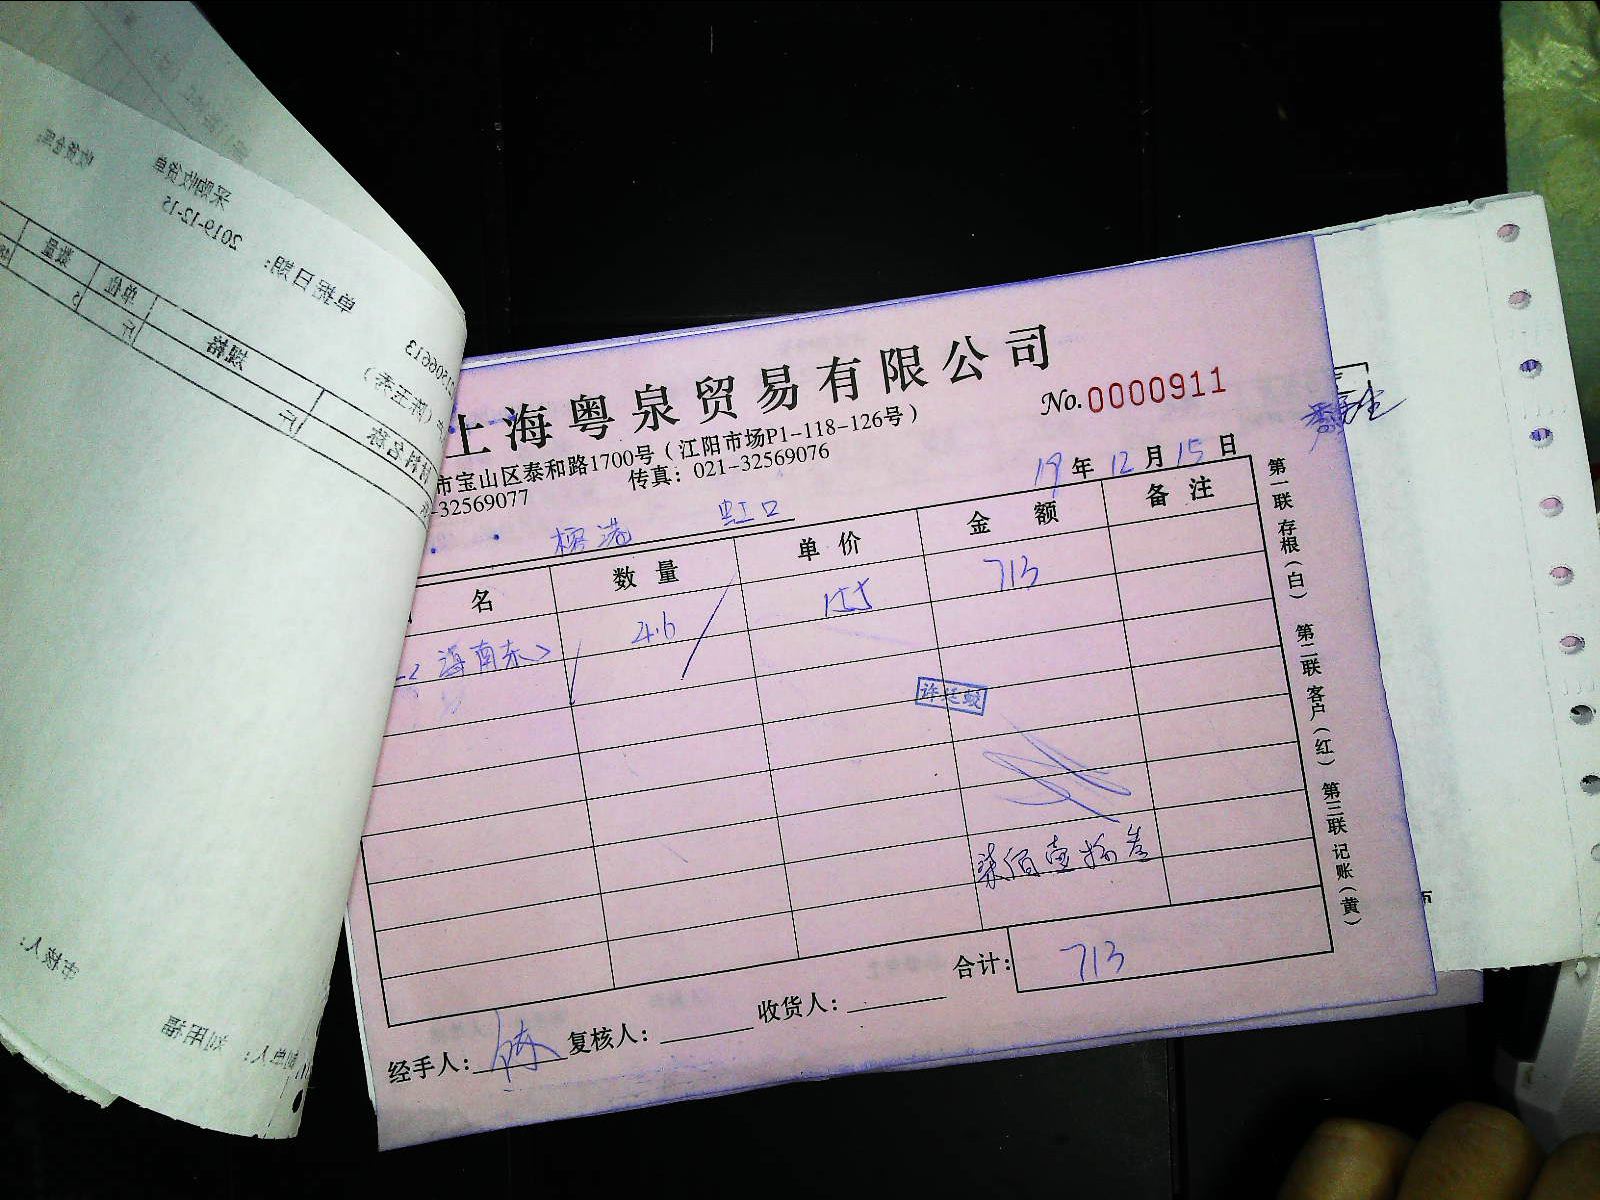 上海粤泉贸易有限公司
No.0000911
市宝山区泰和路1700号（江阳市场P1-118-126号）
-32569077 传真：021-32569076
19年12月15日
虹口
名 数量 单价 金额 备注
海南东 4.6 155 713
柒佰壹拾叁
合计：713
经手人： 复核人： 收货人：
第一联 存根（白） 第二联 客户（红） 第三联 记账（黄）
采购收货单
单据日期： 2019-12-15
材料名称 规格 单位 数量
斤
审核人：